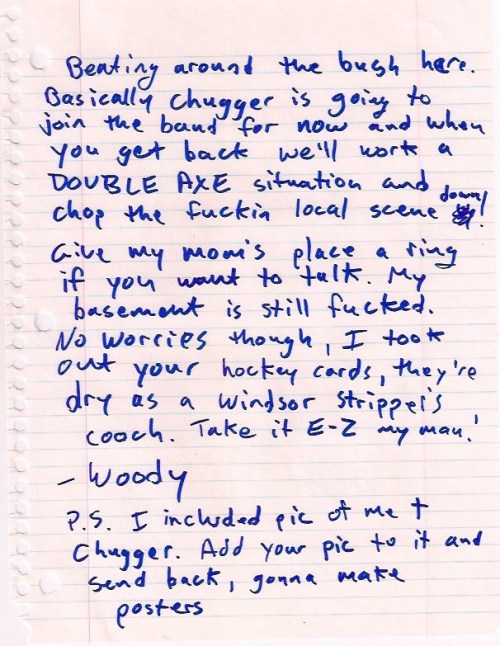 Beating around the bush here.
Basically Chugger is going to
join the band for now and when
you get back we'll work a
DOUBLE AXE situation and
chop the fuckin local scene down!
Give my mom's place a ring
if you want to talk. My
basement is still fucked.
No Worries though, I took
out your hockey cards, they're
dry as a Windsor stripper's
cooch. Take it E-Z my man!
- Woody
P.S. I included pic of me +
Chugger. Add your pic to it and
send back, gonna make
posters